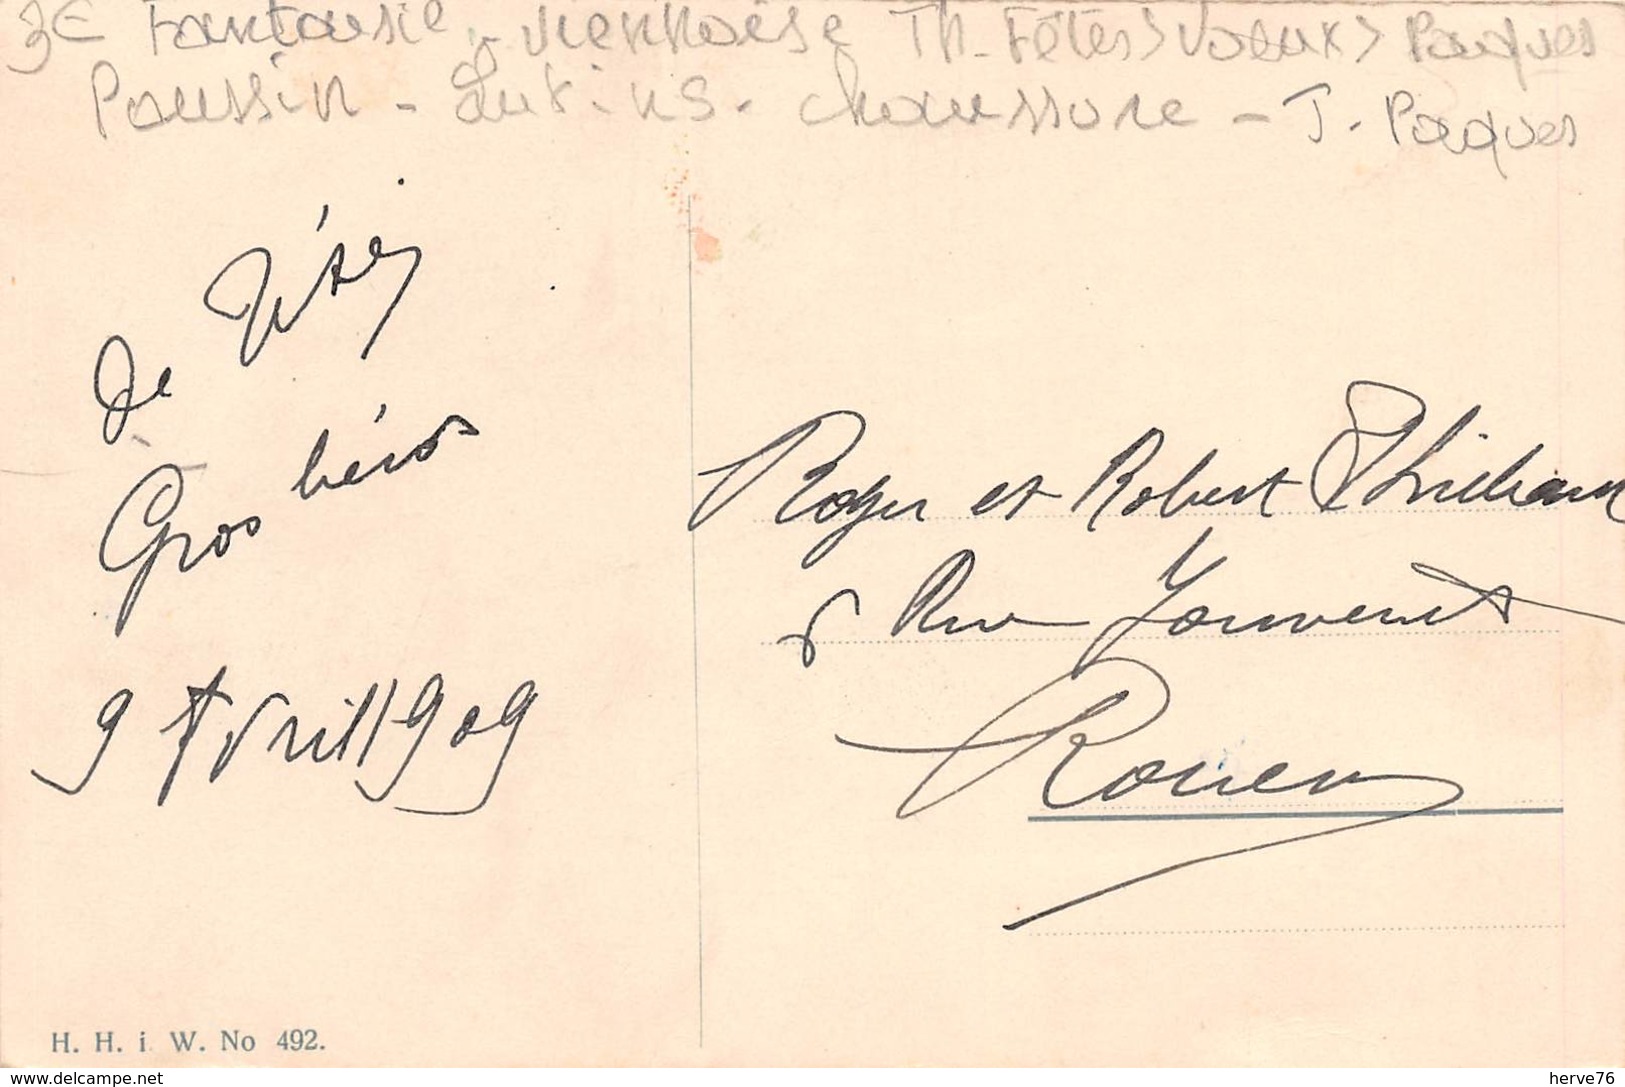 3€ Fantaisie - viennoise Th-Fêtes > Voeux > Paques
Poussin - Lutins - Chaussure - J. Paques
de
Gros béros
9 Avril 1909
Roger et Robert
6 Rue Jouvenet
Rouen
H. H. i. W. No 492.
www.delcampe.net
herve76